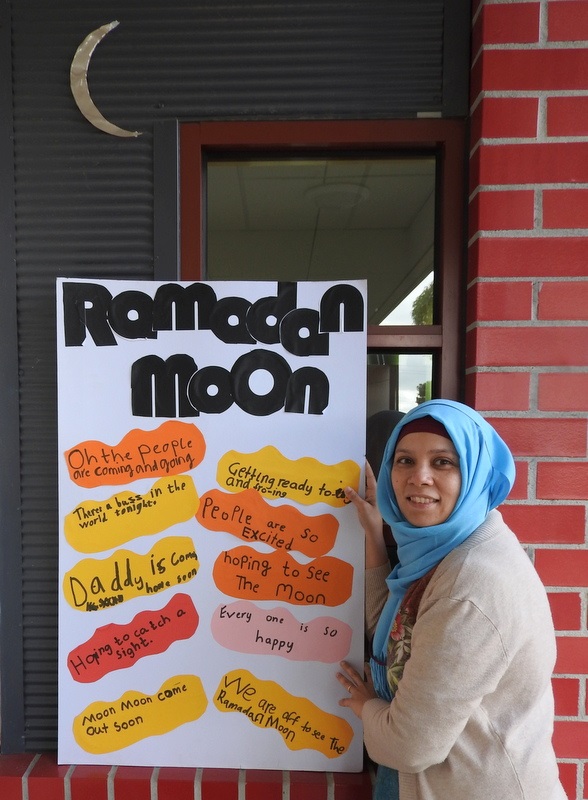 Ramadan
Moon
Oh the people
are coming and going
Getting ready to-ing
and fro-ing
Theres a buzz in the
world tonight.
People are so
Excited
Daddy is coming
home soon
hoping to see
The Moon
Hoping to catch a
sight.
Every one is so
happy
Moon Moon come
Out Soon
We are off to see The
Ramadan Moon